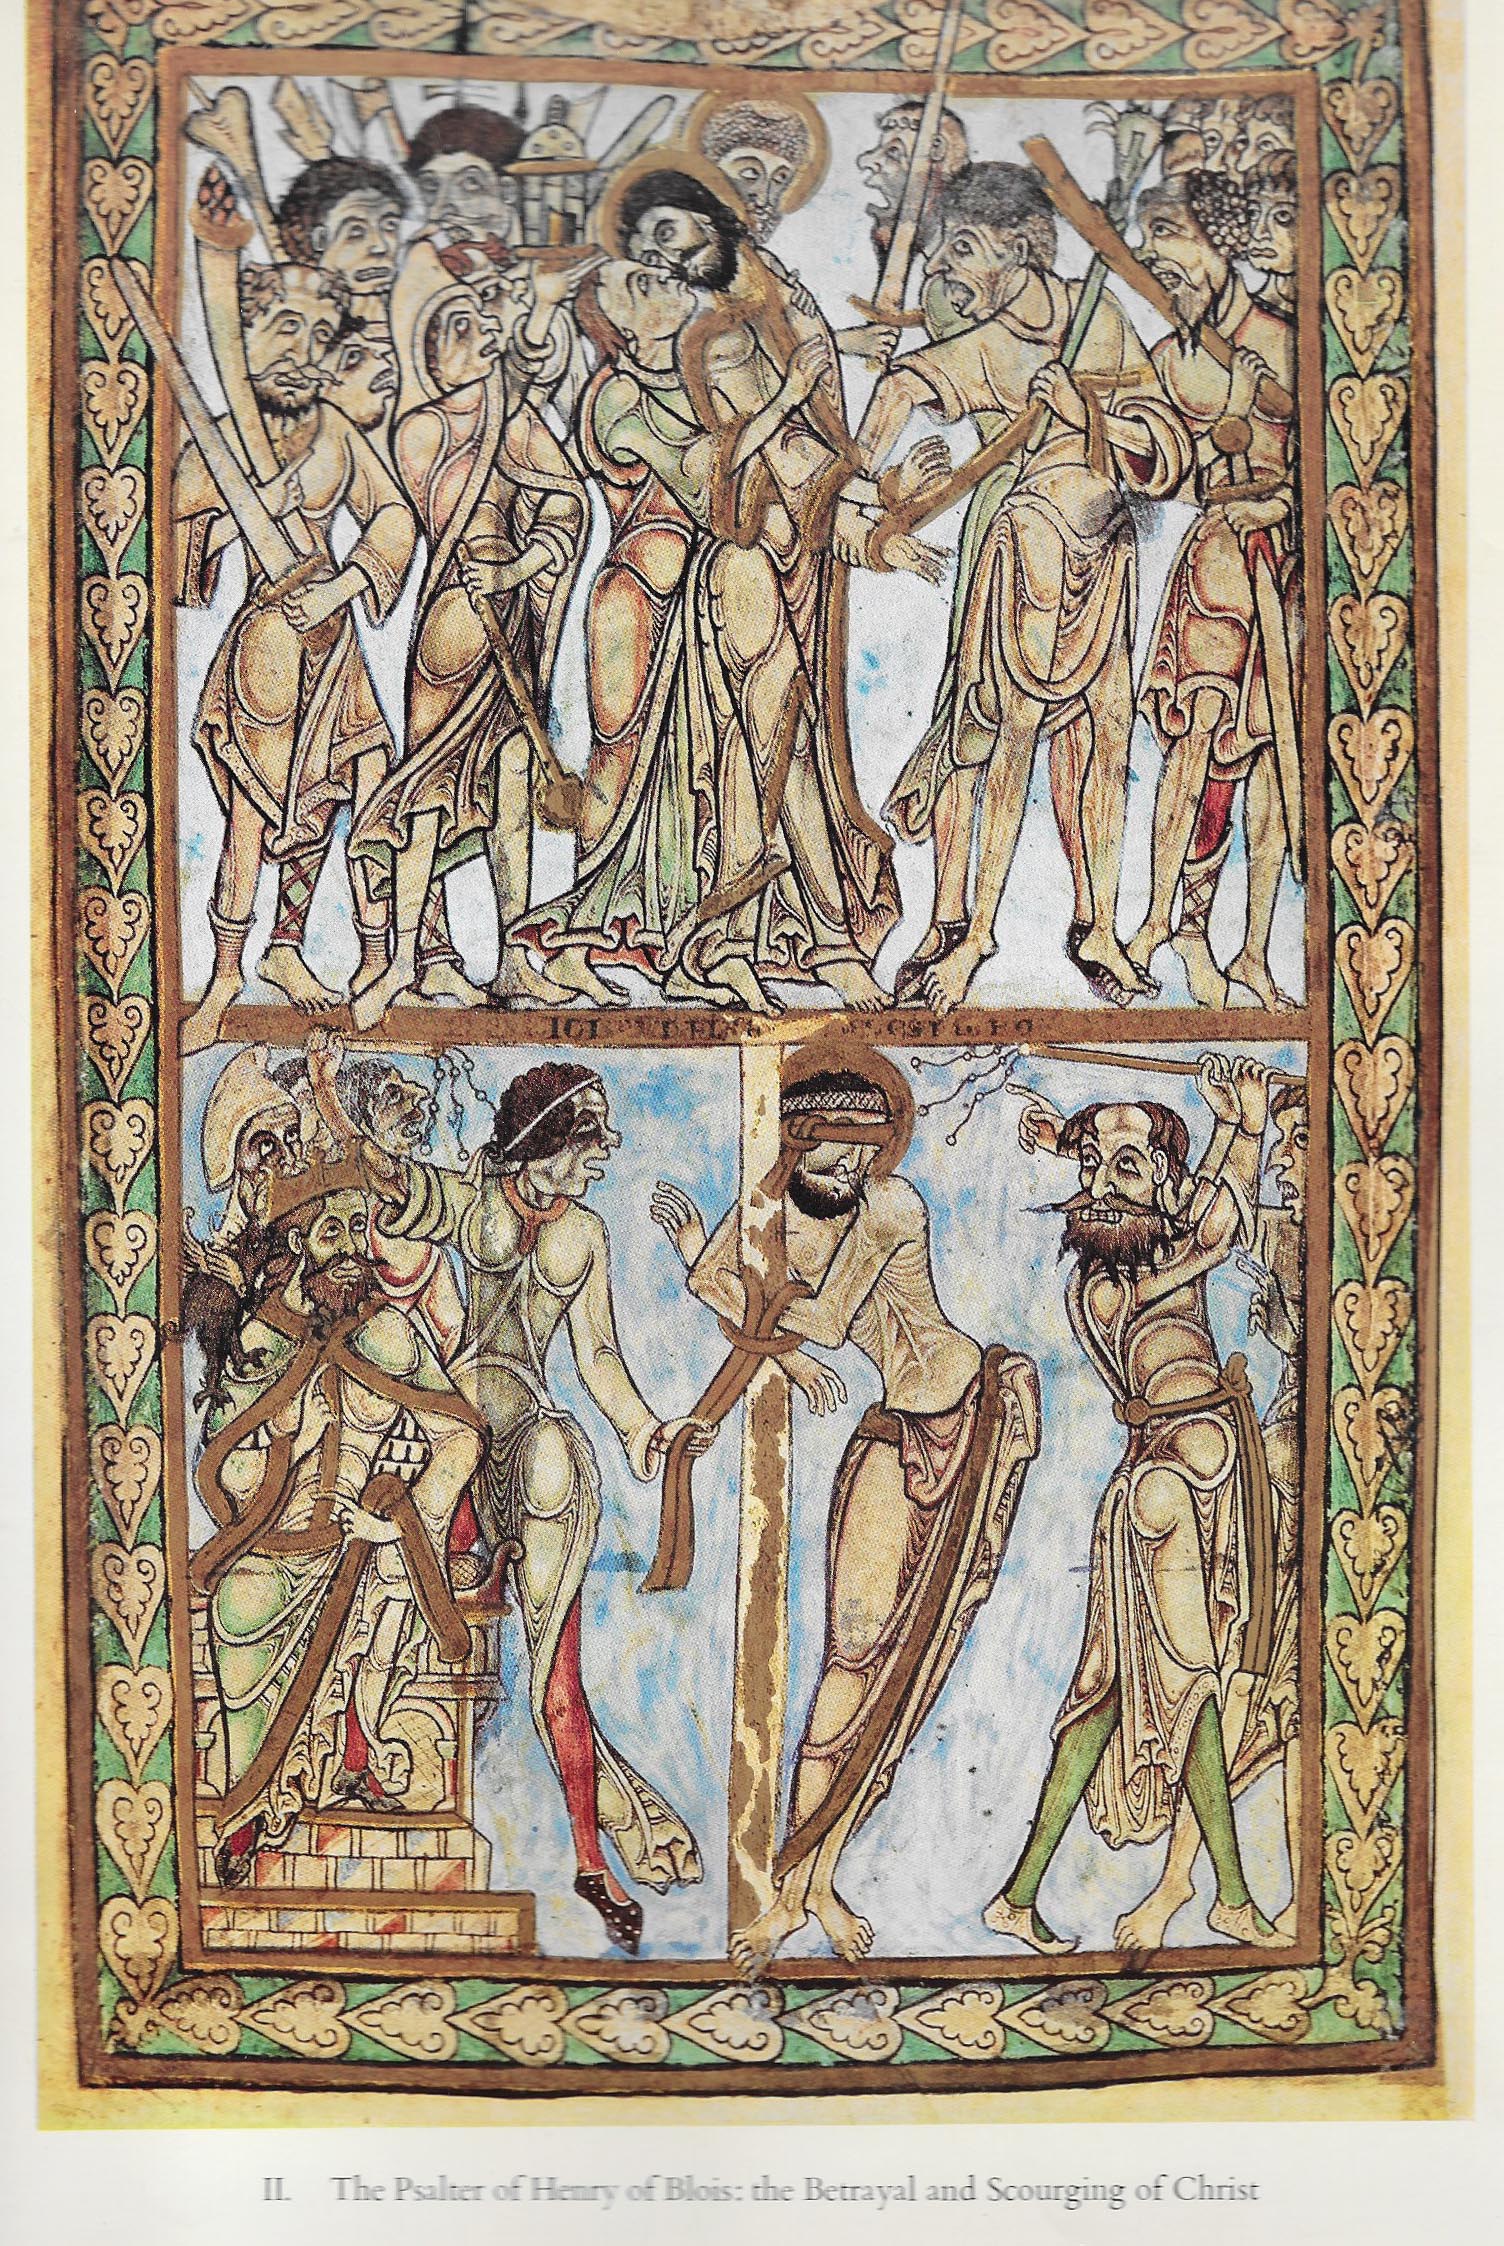 ICI
II. The Psalter of Henry of Blois: the Betrayal and Scourging of Christ